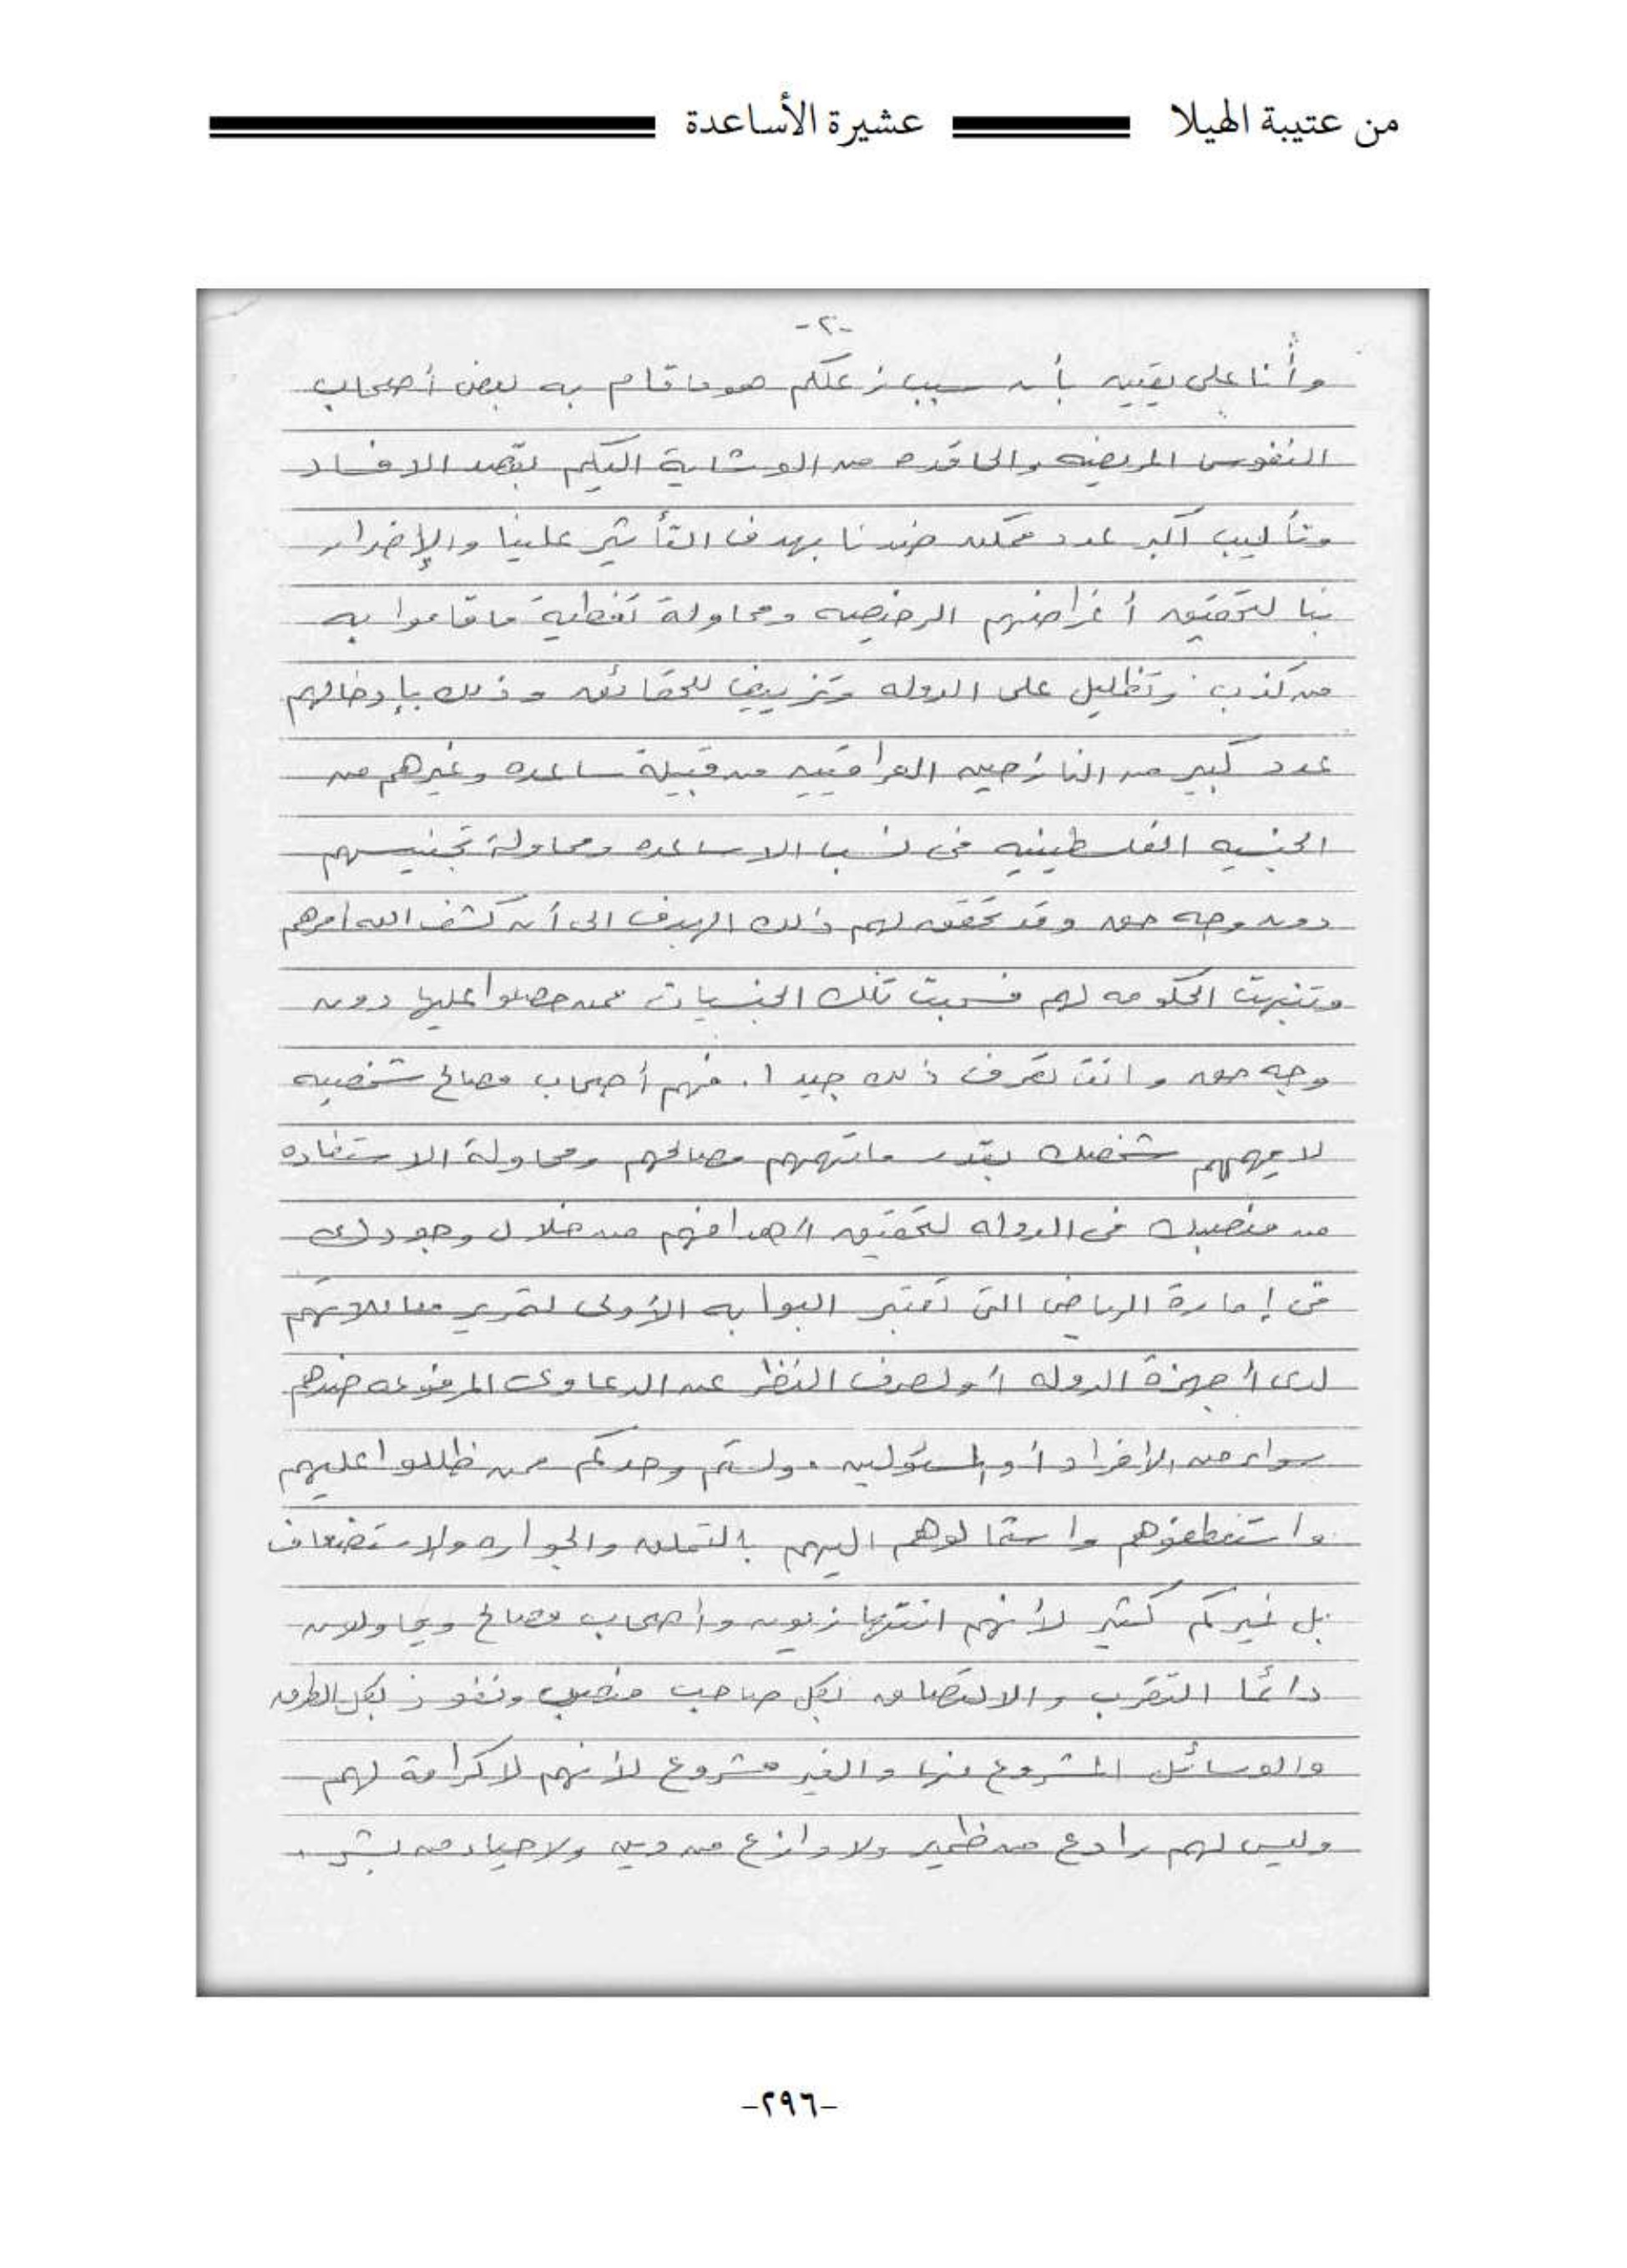 من عتيبة الهيلا عشيرة الأساعدة
-٢-
وأنا على يقين بأن سبب زعلكم هو ما قام به بعض أصحاب
النفوس المريضه والحاقده من الوشاية اليكم بقصد الافساد
وتأليب أكبر عدد ممكن ضدنا بهدف التأثير علينا والإضرار
بنا لتحقيق أغراضهم الرخيصه ومحاولة تغطية ما قاموا به
من كذب وتظليل على الدوله وتزييف للحقائق وذلك بإدخالهم
عدد كبير من النازحين العراقيين من قبيلة ساعده وغيرهم من
الجنسيه الفلسطينيه في نسب الاساعده ومحاولة تجنيسهم
دون وجه حق وقد تحقق لهم ذلك الهدف الى أن كشف الله أمرهم
وتنبهت الحكومه لهم فسحبت تلك الجنسيات ممن حصلوا عليها دون
وجه حق وانت تعرف ذلك جيدا . فهم أصحاب مصالح شخصيه
لا يهمهم شخصك بقدر ما تهمهم مصالحهم ومحاولة الاستفاده
من منصبك في الدوله لتحقيق أهدافهم من خلال وجودك
في إمارة الرياض التي تعتبر البوابه الأولى لتمرير معاملاتهم
لدى أجهزة الدوله أو لصرف النظر عن الدعاوى المرفوعه ضدهم
سواء من الأفراد أو المسئولين . ولستم وحدكم ممن ظللوا عليهم
واستعطفوهم واستمالوهم اليهم بالتملق والجواره والاستضعاف
بل غيركم كثير لأنهم انتهازيون وأصحاب مصالح ويحاولون
دائما التقرب والالتصاق بكل صاحب منصب ونفوذ بكل الطرق
والوسائل المشروع منها والغير مشروع لأنهم لا كرامة لهم
وليس لهم رادع من ظمير ولا وازع من دين ولا حياء من بشر .
-٢٩٦-